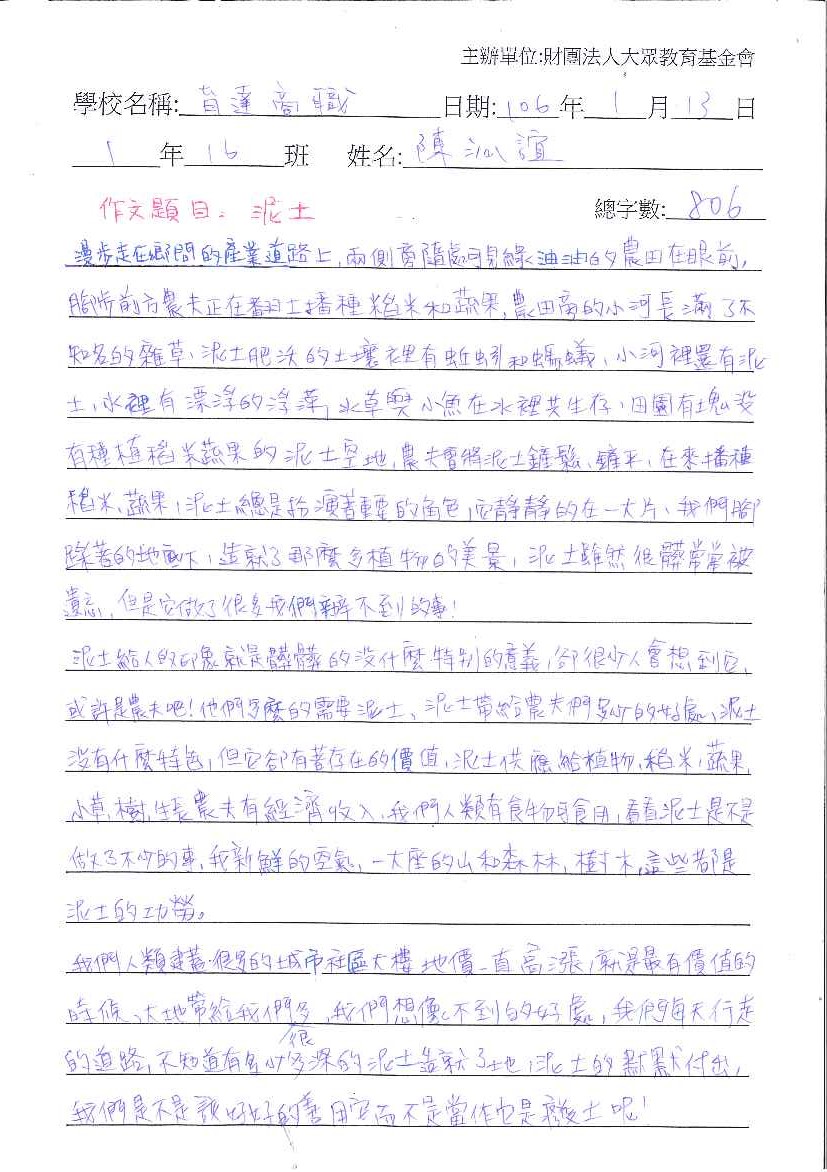 主辦單位:財團法人大眾教育基金會
學校名稱: 育達商職 日期: 106 年 1 月 13 日
1 年 16 班 姓名: 陳 誼
作文題目：泥土 總字數: 806
漫步走在鄉間的產業道路上,兩側旁隨處可見綠油油的農田在眼前,
腳步前方農夫正在翻土播種稻米和蔬果,農田旁的小河長滿了不
知名的雜草、泥土肥沃的土壤裡有蚯蚓和螞蟻、小河裡還有泥
土、水裡有漂浮的浮萍,水草與小魚在水裡共生存,田園有塊沒
有種植稻米蔬果的泥土空地,農夫會將泥土鏟鬆、鏟平、在來播種
稻米、蔬果,泥土總是扮演著重要的角色,它靜靜的在一大片、我們腳
踩著的地底下,造就了那麼多植物的美景,泥土雖然很髒常常被
遺忘,但是它做了很多我們辦不到的事!
泥土給人的印象就是髒髒的沒什麼特別的意義,卻很少人會想到它,
或許是農夫吧!他們多麼的需要泥土、泥土帶給農夫們多少的好處、泥土
沒有什麼特色,但它卻有著存在的價值,泥土供應給植物,稻米,蔬果,
小草,樹,生長農夫有經濟收入,我們人類有食物可食用,看看泥土是不是
做了不少的事,我新鮮的空氣,一大座的山和森林,樹木,這些都是
泥土的功勞。
我們人類建蓋很多的城市社區大樓地價一直高漲,就是最有價值的
時候、大地帶給我們很多,我們想像不到的好處,我們每天行走
的道路,不知道有多少多深的泥土造就了地,泥土的默默付出,
我們是不是該好好的善用它而不是當作它是廢土呢!